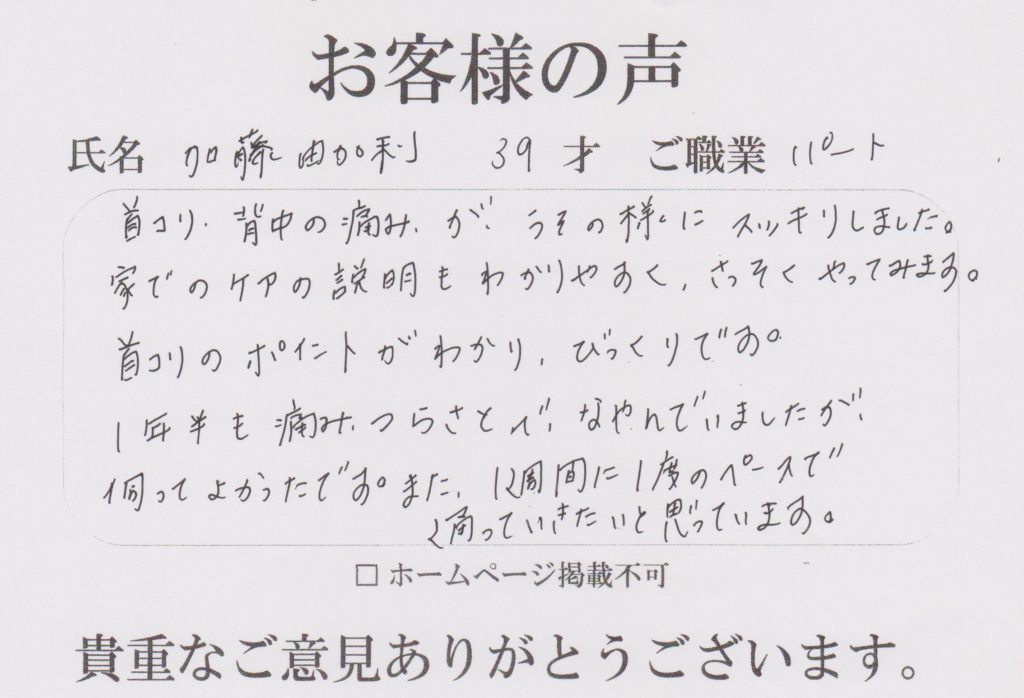 お客様の声
氏名 加藤由加利 39才 ご職業 パート
首コリ、背中の痛みが、うその様にスッキリしました。
家でのケアの説明もわかりやすく、さっそくやってみます。
首コリのポイントがわかり、びっくりです。
1年半も痛み、つらさとで、なやんでいましたが、
伺ってよかったです。また、1週間に1度のペースで
通っていきたいと思っています。
□ ホームページ掲載不可
貴重なご意見ありがとうございます。